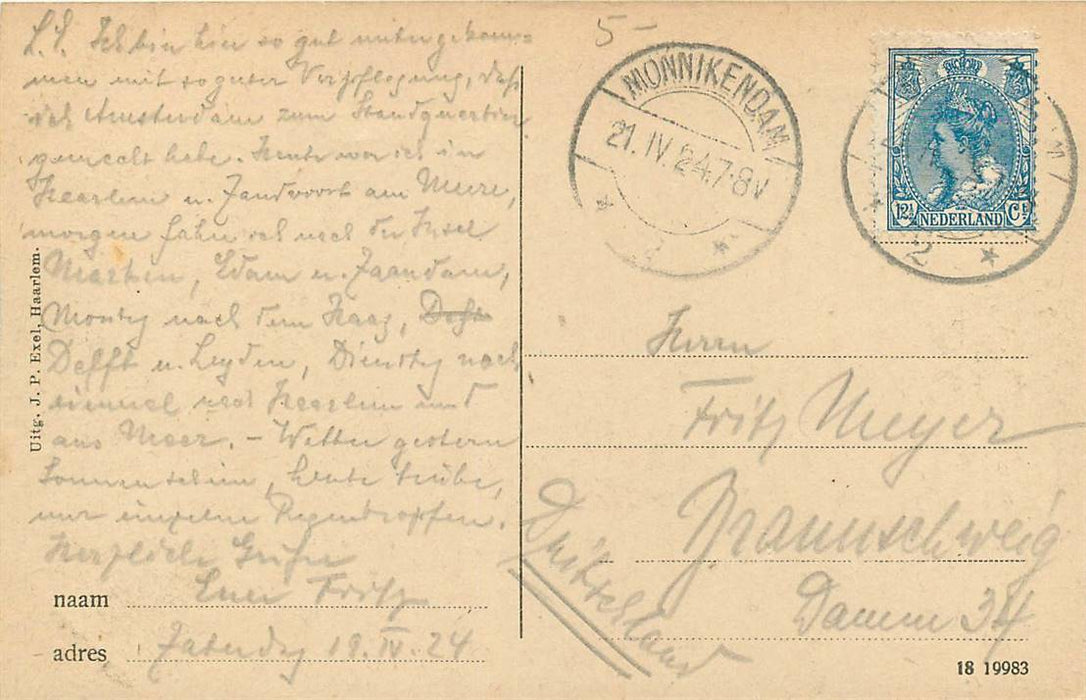 L. L. Ich bin hier so gut untergekom=
men mit so guter Verpflegung, daß
ich Amsterdam zum Standquartier
gemacht habe. Heute war ich in
Haarlem u. Zandvoort am Meere,
morgen fahre ich nach der Insel
Marken, Edam u. Zaandam,
Montag nach dem Haag,
Delfft u. Leyden, Dienstag noch
einmal nach Haarlem und
ans Meer. – Wetter gestern
Sonnenschein, heute trübe,
nur einzelne Regentropfen.
Herzliche Grüße
Euer Fritz
naam
adres Zaterdag 19. IV. 24
Uitg. J. P. Exel, Haarlem.
5–
MONNIKENDAM
21. IV 24.7-8V
2
12½ NEDERLAND Ct
2
Herrn
Fritz Meyer
Braunschweig
Damm 34
Deutschland
18 19983